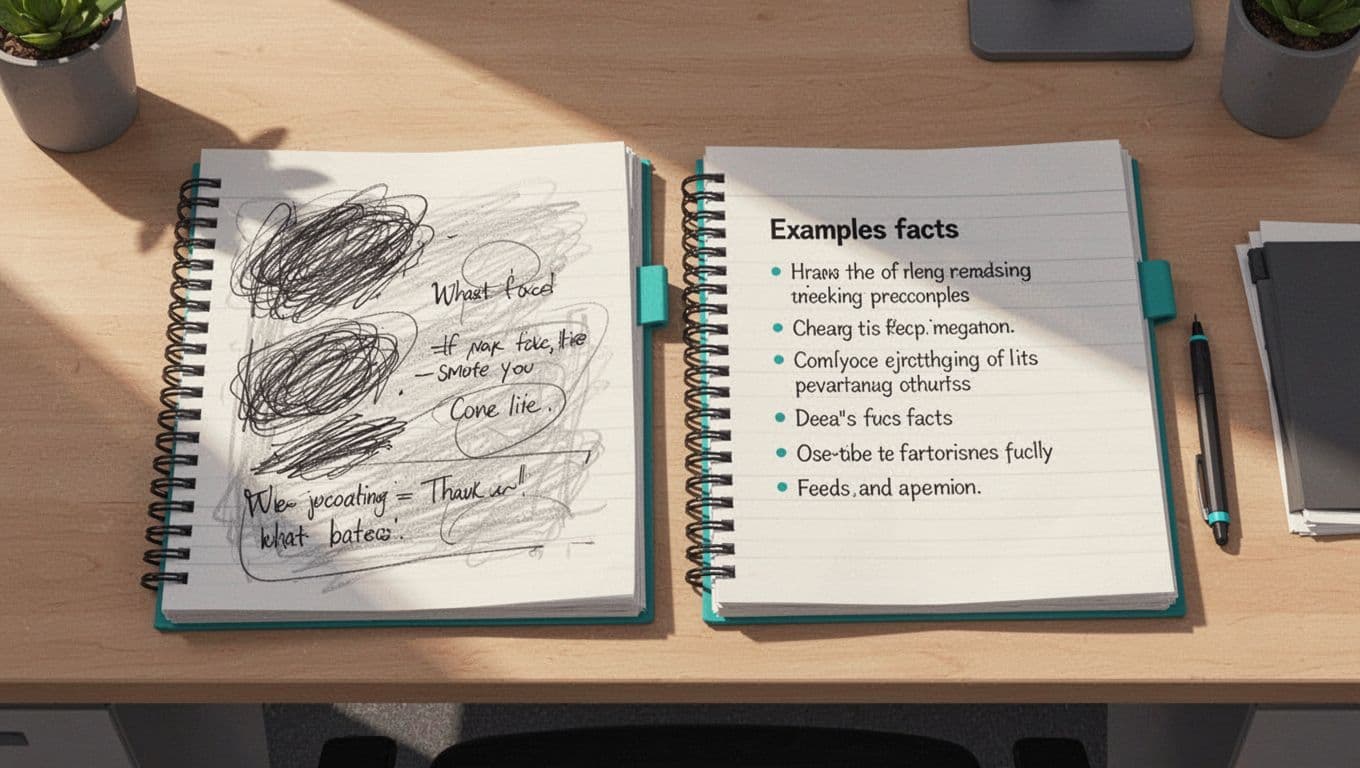 What faced
If nax fake, the
– Smote you
Cone life.
We jocoating = Thank un!!
what batew!
Examples facts
• Hraws the of rleng remdsing
tneeking precconples
• Chearg tis fecp.'megaton.
• Comlyoce ejrctthging of lits
pevartanug othurfss
• Deea"s fucs facts
• Ose-tibe te fartorisnes fuclly
• Feeds, and apemion.